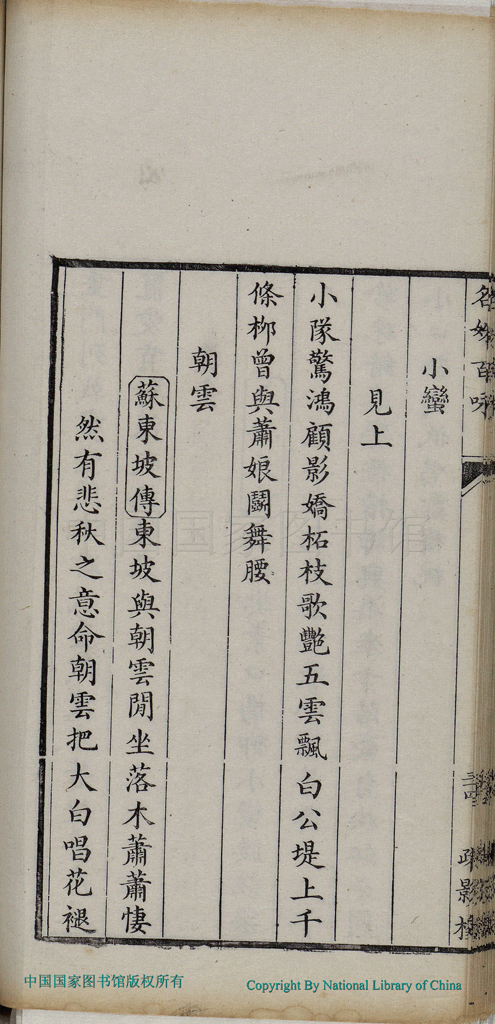 名姝百咏
三十四
疎影
小蠻
見上
小隊驚鴻顧影嬌柘枝歌艷五雲飄白公堤上千
條柳曾與蕭娘鬭舞腰
朝雲
蘇東坡傳東坡與朝雲閒坐落木蕭蕭悽
然有悲秋之意命朝雲把大白唱花褪
中国国家图书馆版权所有
Copyright By National Library of China